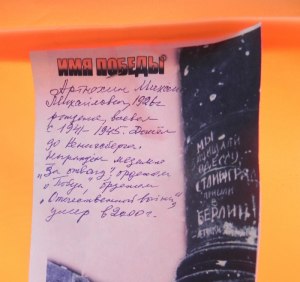 ИМЯ ПОБЕДЫ
Артюхин Михаил
Михайлович, 1926г
рождения, воевал
с 1941-1945. Дошёл
до Кенигсберга.
Награжден медалью
"За отвагу", орденом
Отечественной войны,
умер в 2000г.
МЫ
ЗАЩИЩАЛИ
ОДЕССУ,
СТАЛИНГРАД
ПРИШЛИ
В
БЕРЛИН!